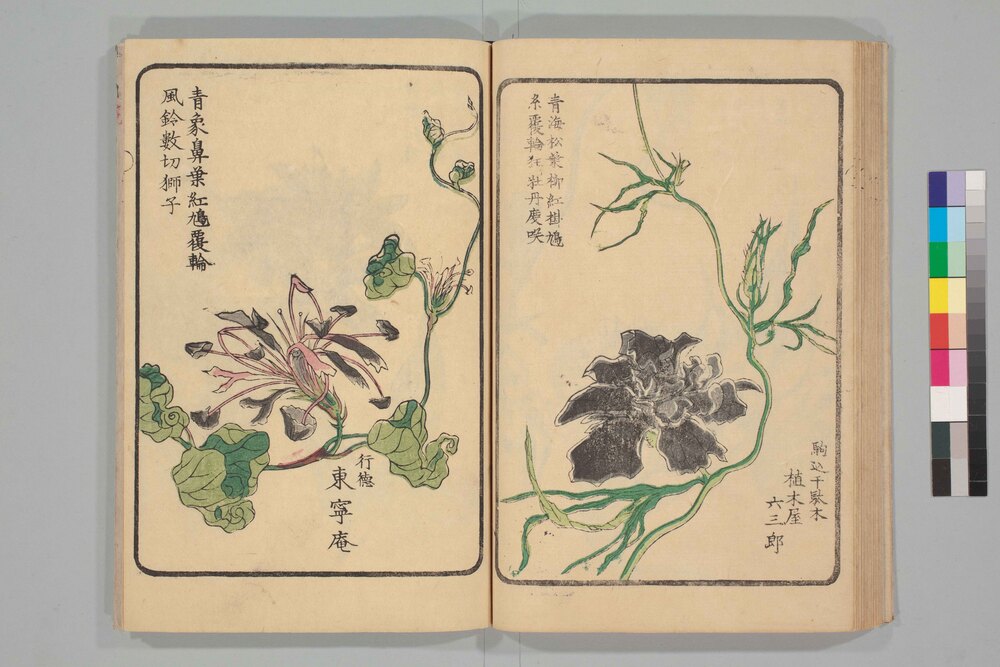 青海松葉柳紅掛鳩
糸覆輪狂牡丹度咲
駒込千駄木
植木屋
六三郎
青象鼻葉紅鳩覆輪
風鈴數切獅子
行德
東寧庵